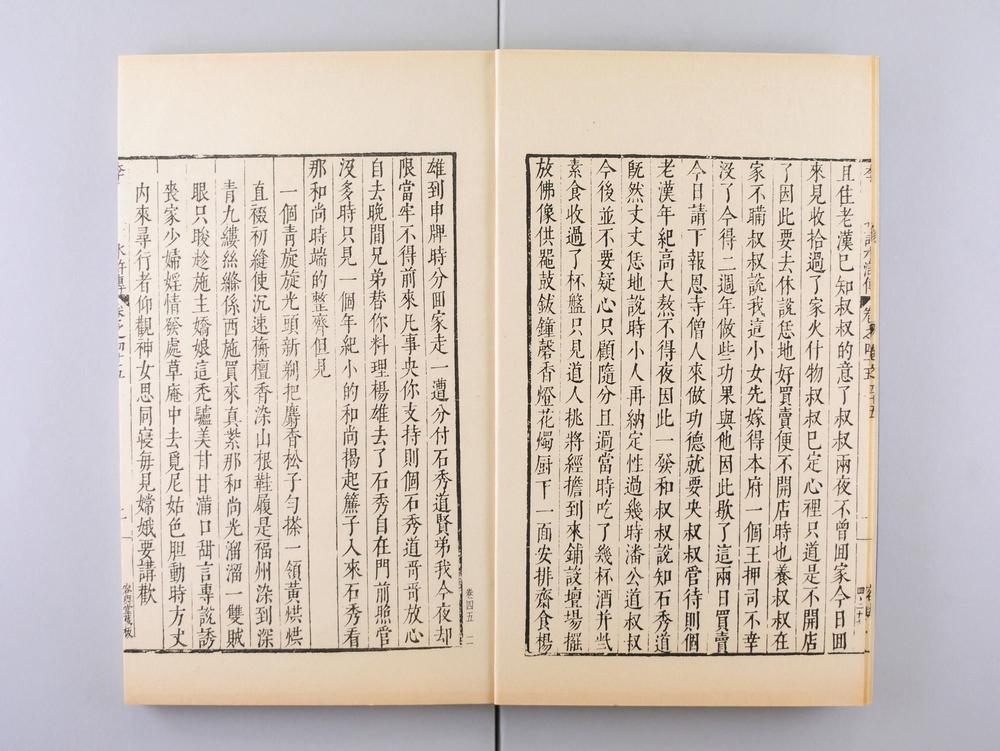 且住老漢已知叔叔的意了叔叔兩夜不曾囬家今日囬
來見收拾過了家火什物叔叔已定心裡只道是不開店
了因此要去休說恁地好買賣便不開店時也養叔叔在
家不瞞叔叔說我這小女先嫁得本府一個王押司不幸
沒了今得二週年做些功果與他因此歇了這兩日買賣
今日請下報恩寺僧人來做功德就要央叔叔管待則個
老漢年紀高大熬不得夜因此一發和叔叔說知石秀道
既然丈丈恁地說時小人再納定性過幾時潘公道叔叔
今後並不要疑心只顧隨分且過當時吃了幾杯酒并些
素食收過了杯盤只見道人挑將經擔到來鋪設壇場擺
放佛像供器鼓鈸鐘磬香燈花燭厨下一面安排齋食楊
雄到申牌時分囬家走一遭分付石秀道賢弟我今夜却
限當牢不得前來凡事央你支持則個石秀道哥哥放心
自去晚間兄弟替你料理楊雄去了石秀自在門前照管
沒多時只見一個年紀小的和尚揭起簾子入來石秀看
那和尚時端的整齊但見
一個青旋旋光頭新剃把麝香松子勻搽一領黃烘烘
直裰初縫使沉速栴檀香染山根鞋履是福州染到深
青九縷絲絛係西施買來真紫那和尚光溜溜一雙賊
眼只睃趁施主嬌娘這禿驢美甘甘滿口甜言專說誘
喪家少婦婬情發處草庵中去覓尼姑色胆動時方丈
內來尋行者仰觀神女思同寢每見嫦娥要講歡
水滸傳
卷四五
二
容與堂藏板